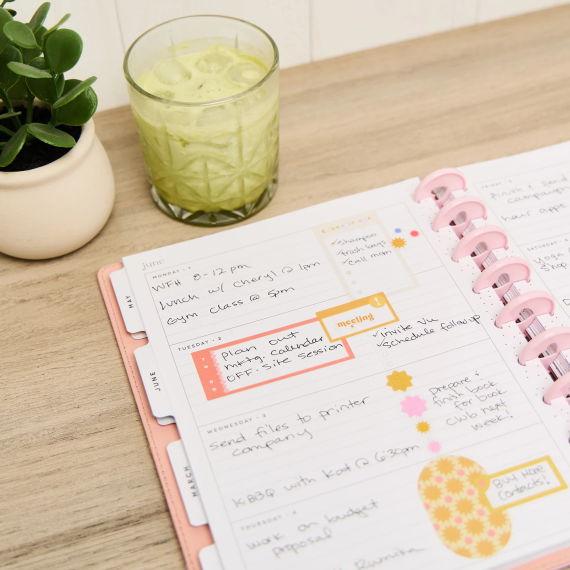 June
MONDAY · 1
WFH 8-12pm
lunch w/ Cheryl @ 1pm
Gym class @ 5pm
✓shampoo
✓trash bags
✓call mom
TUESDAY · 2
plan out
mktg. calendar
OFF-site session
meeting
✓invite Vu
✓schedule followup
WEDNESDAY · 3
Send files to printer
company
KBBQ with Kat @ 6:30pm
prepare &
finish book
for book
club next
week!
THURSDAY · 4
work on budget
proposal
Rumika
BUY MORE
Contacts!
MAY
JUNE
MARCH
FRIDAY · 5
finish & send
campaign
hair appt
SATURDAY · 6
yoga
shop